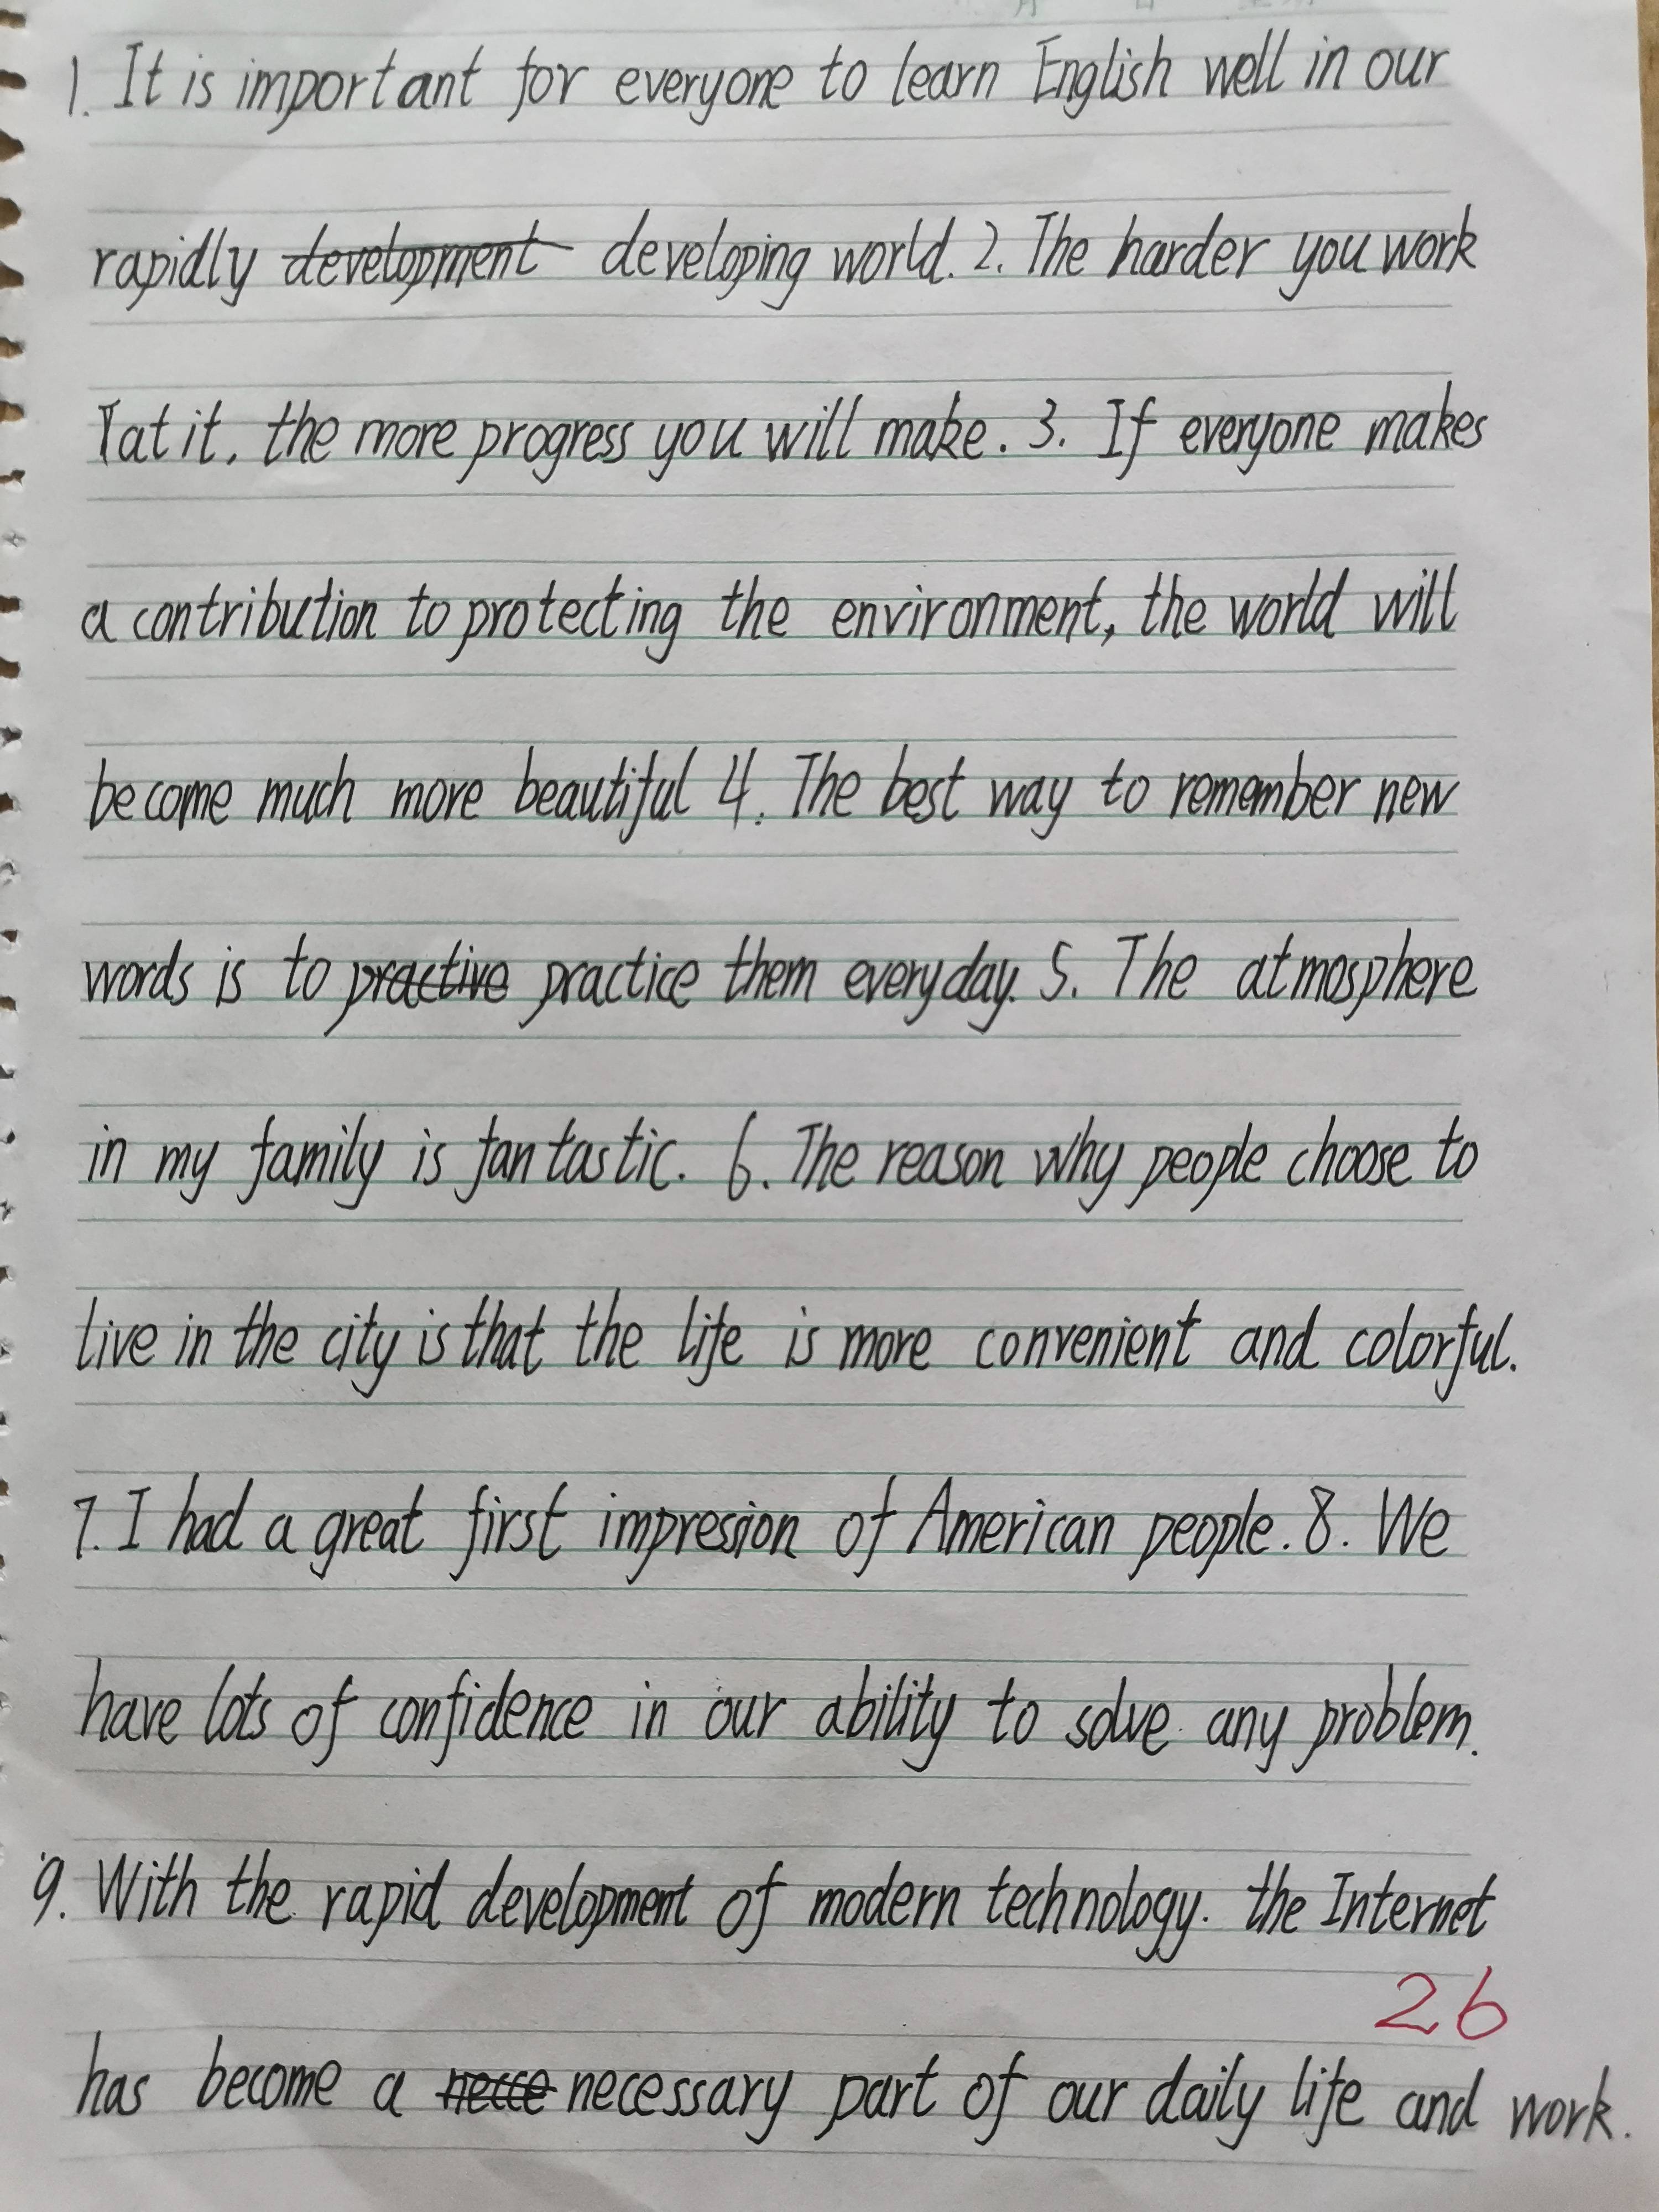 1. It is important for everyone to learn English well in our
rapidly development developing world. 2. The harder you work
at it, the more progress you will make. 3. If everyone makes
a contribution to protecting the environment, the world will
become much more beautiful 4. The best way to remember new
words is to practive practice them everyday. 5. The atmosphere
in my family is fantastic. 6. The reason why people choose to
live in the city is that the life is more convenient and colorful.
7. I had a great first impression of American people. 8. We
have lots of confidence in our ability to solve any problem.
9. With the rapid development of modern technology. the Internet
26
has become a necce necessary part of our daily life and work.